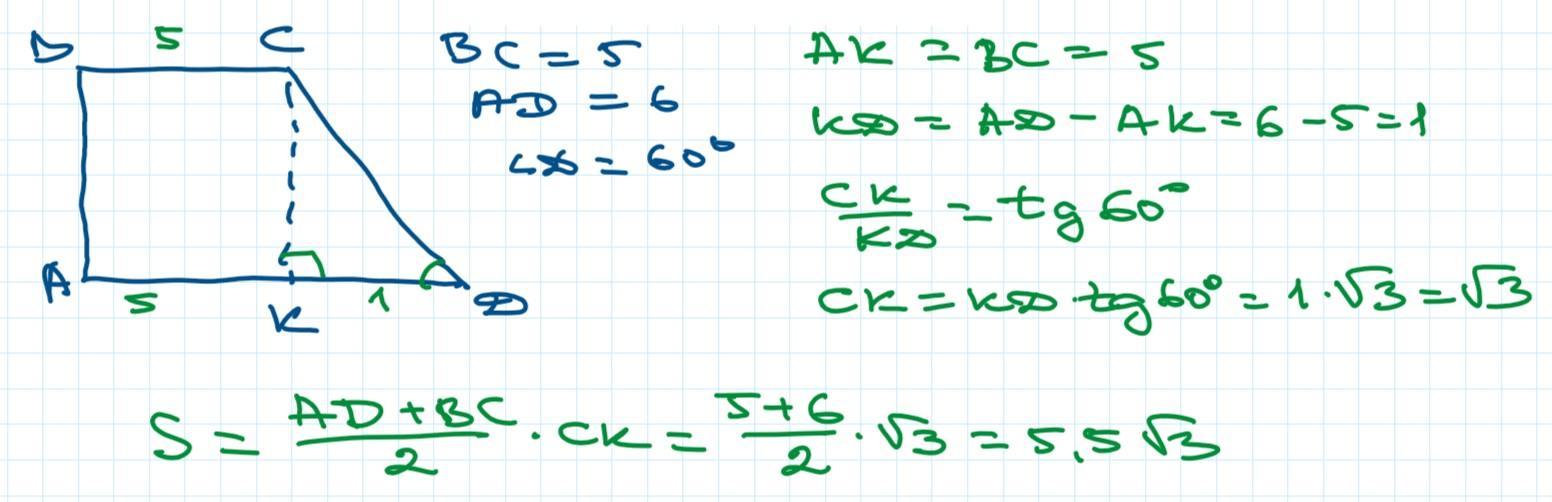 B 5 C
A 5 K 1 D
BC = 5
AD = 6
∠D = 60°
AK = BC = 5
KD = AD - AK = 6 - 5 = 1
CK/KD = tg 60°
CK = KD · tg 60° = 1 · √3 = √3
S = (AD + BC)/2 · CK = (5 + 6)/2 · √3 = 5,5 √3